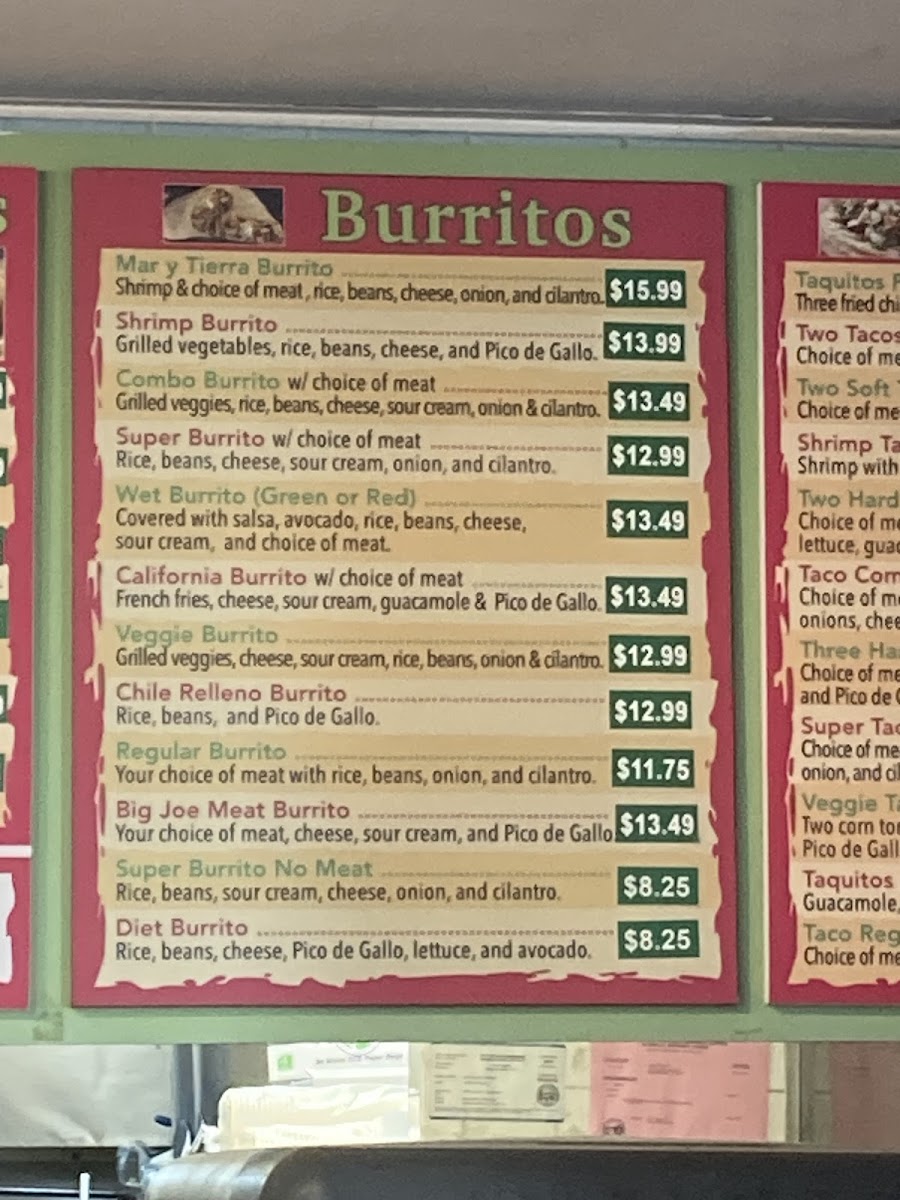 Burritos
Mar y Tierra Burrito
Shrimp & choice of meat, rice, beans, cheese, onion, and cilantro. $15.99
Shrimp Burrito
Grilled vegetables, rice, beans, cheese, and Pico de Gallo. $13.99
Combo Burrito w/ choice of meat
Grilled veggies, rice, beans, cheese, sour cream, onion & cilantro. $13.49
Super Burrito w/ choice of meat
Rice, beans, cheese, sour cream, onion, and cilantro. $12.99
Wet Burrito (Green or Red)
Covered with salsa, avocado, rice, beans, cheese, $13.49
sour cream, and choice of meat.
California Burrito w/ choice of meat
French fries, cheese, sour cream, guacamole & Pico de Gallo. $13.49
Veggie Burrito
Grilled veggies, cheese, sour cream, rice, beans, onion & cilantro. $12.99
Chile Relleno Burrito
Rice, beans, and Pico de Gallo. $12.99
Regular Burrito
Your choice of meat with rice, beans, onion, and cilantro. $11.75
Big Joe Meat Burrito
Your choice of meat, cheese, sour cream, and Pico de Gallo $13.49
Super Burrito No Meat
Rice, beans, sour cream, cheese, onion, and cilantro. $8.25
Diet Burrito
Rice, beans, cheese, Pico de Gallo, lettuce, and avocado. $8.25
Taquitos
Three fried
Two Tacos
Choice of
Two Soft
Choice of
Shrimp
Shrimp with
Two Hard
Choice of
lettuce,
Taco
Choice of
onions,
Three
Choice of
and Pico de
Super
Choice of
onion, and
Veggie
Two corn
Pico de
Taquitos
Guacamole,
Taco
Choice of